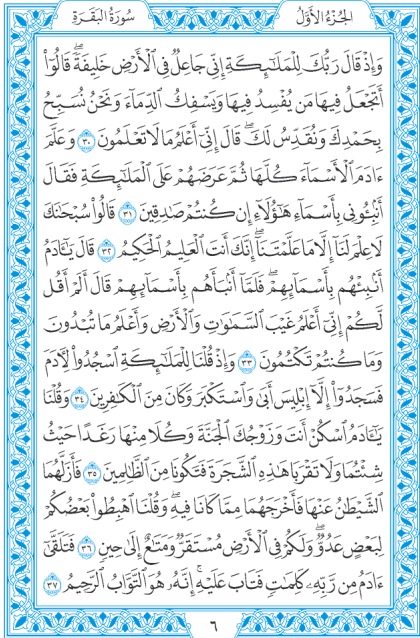 الجُزْءُ الأَوَّلُ
سُورَةُ البَقَرَةِ
وَإِذْ قَالَ رَبُّكَ لِلْمَلَـٰٓئِكَةِ إِنِّى جَاعِلٌ فِى ٱلْأَرْضِ خَلِيفَةً ۖ قَالُوٓا۟
أَتَجْعَلُ فِيهَا مَن يُفْسِدُ فِيهَا وَيَسْفِكُ ٱلدِّمَآءَ وَنَحْنُ نُسَبِّحُ
بِحَمْدِكَ وَنُقَدِّسُ لَكَ ۖ قَالَ إِنِّىٓ أَعْلَمُ مَا لَا تَعْلَمُونَ ٣٠ وَعَلَّمَ
ءَادَمَ ٱلْأَسْمَآءَ كُلَّهَا ثُمَّ عَرَضَهُمْ عَلَى ٱلْمَلَـٰٓئِكَةِ فَقَالَ
أَنۢبِـُٔونِى بِأَسْمَآءِ هَـٰٓؤُلَآءِ إِن كُنتُمْ صَـٰدِقِينَ ٣١ قَالُوا۟ سُبْحَـٰنَكَ
لَا عِلْمَ لَنَآ إِلَّا مَا عَلَّمْتَنَآ ۖ إِنَّكَ أَنتَ ٱلْعَلِيمُ ٱلْحَكِيمُ ٣٢ قَالَ يَـٰٓـَٔادَمُ
أَنۢبِئْهُم بِأَسْمَآئِهِمْ ۖ فَلَمَّآ أَنۢبَأَهُم بِأَسْمَآئِهِمْ قَالَ أَلَمْ أَقُل
لَّكُمْ إِنِّىٓ أَعْلَمُ غَيْبَ ٱلسَّمَـٰوَٰتِ وَٱلْأَرْضِ وَأَعْلَمُ مَا تُبْدُونَ
وَمَا كُنتُمْ تَكْتُمُونَ ٣٣ وَإِذْ قُلْنَا لِلْمَلَـٰٓئِكَةِ ٱسْجُدُوا۟ لِـَٔادَمَ
فَسَجَدُوٓا۟ إِلَّآ إِبْلِيسَ أَبَىٰ وَٱسْتَكْبَرَ وَكَانَ مِنَ ٱلْكَـٰفِرِينَ ٣٤ وَقُلْنَا
يَـٰٓـَٔادَمُ ٱسْكُنْ أَنتَ وَزَوْجُكَ ٱلْجَنَّةَ وَكُلَا مِنْهَا رَغَدًا حَيْثُ
شِئْتُمَا وَلَا تَقْرَبَا هَـٰذِهِ ٱلشَّجَرَةَ فَتَكُونَا مِنَ ٱلظَّـٰلِمِينَ ٣٥ فَأَزَلَّهُمَا
ٱلشَّيْطَـٰنُ عَنْهَا فَأَخْرَجَهُمَا مِمَّا كَانَا فِيهِ ۖ وَقُلْنَا ٱهْبِطُوا۟ بَعْضُكُمْ
لِبَعْضٍ عَدُوٌّ ۖ وَلَكُمْ فِى ٱلْأَرْضِ مُسْتَقَرٌّ وَمَتَـٰعٌ إِلَىٰ حِينٍ ٣٦ فَتَلَقَّىٰٓ
ءَادَمُ مِن رَّبِّهِۦ كَلِمَـٰتٍ فَتَابَ عَلَيْهِ ۚ إِنَّهُۥ هُوَ ٱلتَّوَّابُ ٱلرَّحِيمُ ٣٧
٦